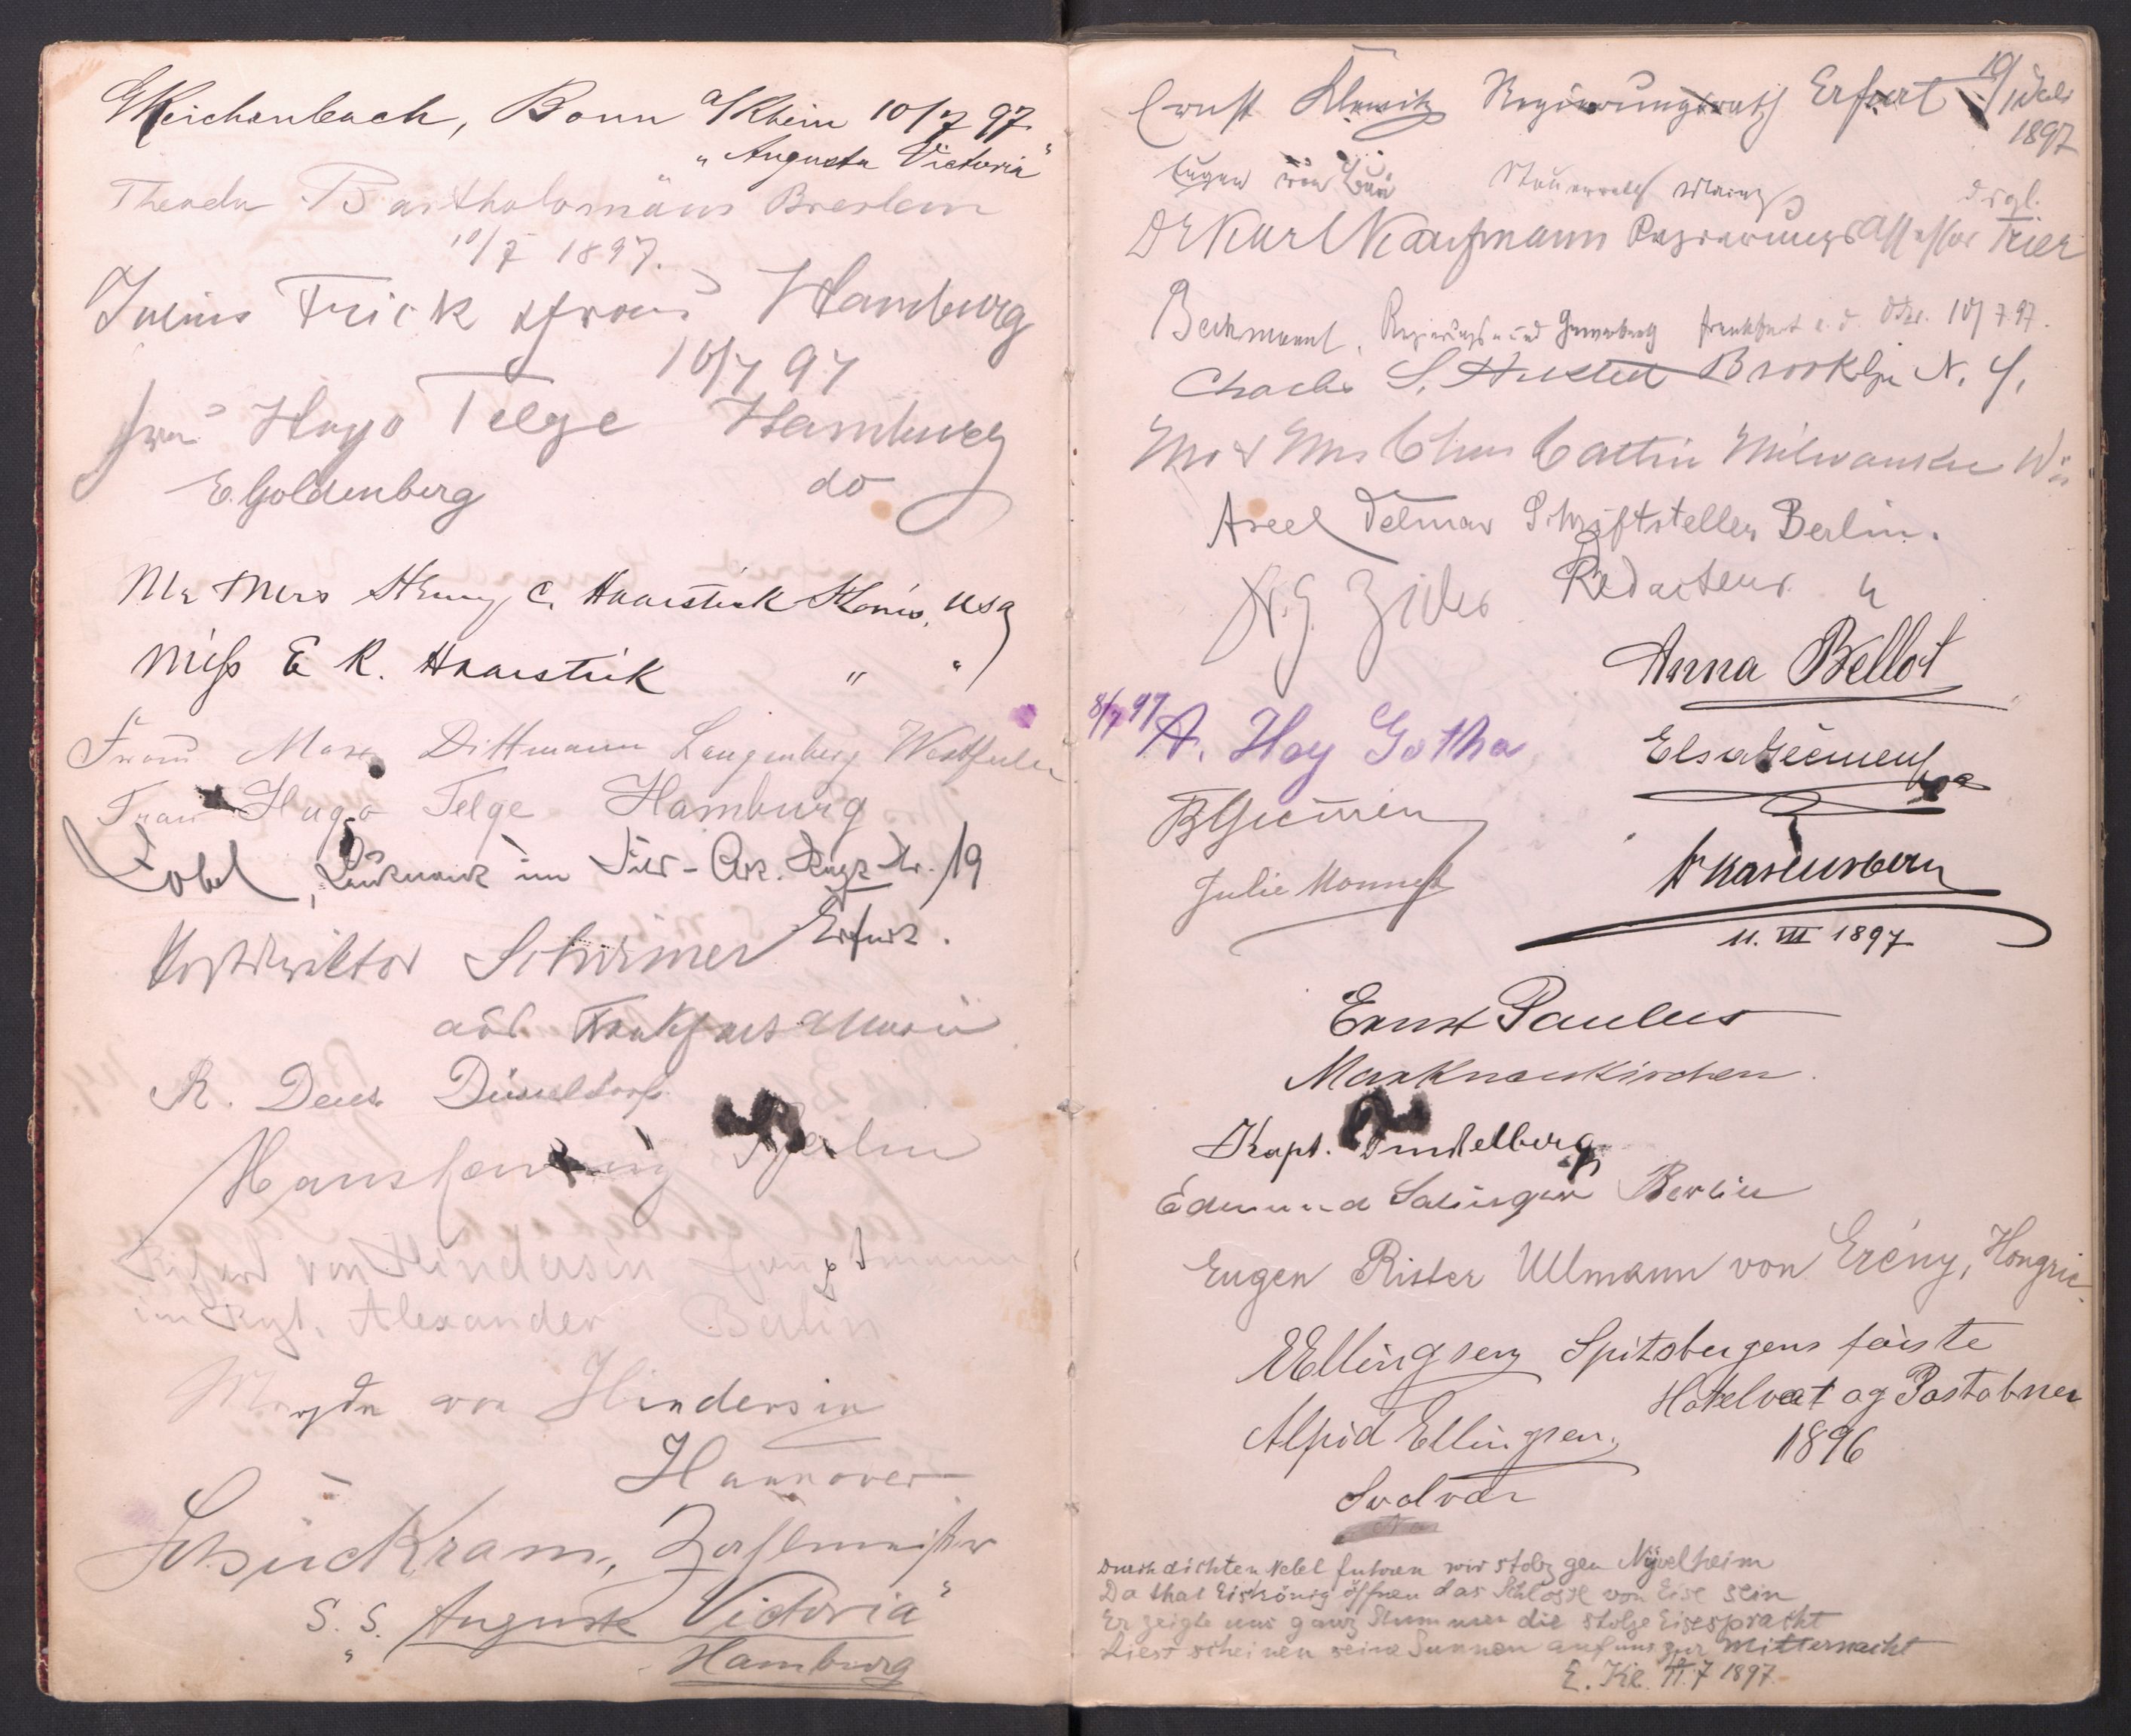 Reichenbach, Bonn a/Rhein 10/7 97.
„Augusta Victoria"
Theodor Bartholomäus Breslau
10/7 1897.
Julius Frick & frau Hamburg
10/7 97
frau Hugo Telge Hamburg
E. Goldenberg do
Mr & Mrs Henry C. Haarstick St Louis, USA
Miss E. K. Haarstick " "
Frau Max Dittmann Langenberg Westfalen
Frau Hugo Telge Hamburg
Lobel, im Feld-Art. Regt. Nr. 19
Erfurt.
Postdirektor Schirmer
aus Frankfurt a Main
R. Deus Düsseldorf
Hans Berlin
von Hindersin Hauptmann
im Rgt. Alexander Berlin
Magda von Hindersin
Hannover
Schückram, Zahlmeister
S. S. „Auguste Victoria"
Hamburg
Ernst Klewitz Regierungsrath Erfurt 10/ Juli
1897
Eugen von Steuerrath Mainz drgl.
Dr Karl Kaufmann Regierungsassessor Trier
Beckmann, Regierungs und Gewerberath Frankfurt a. d. Oder. 10/7.97.
Charles S. Husted Brooklyn N. Y.
Mr & Mrs Chas Catlin Milwaukee Wis
Axel Delmar Schriftsteller Berlin.
Redacteur "
Anna Bellot
8/7 97 A. Hey Gotha
Elsa
Julie
11. VII 1897
Ernst Paulus
Markneukirchen.
Kapt.
Edmund Salinger Berlin
Eugen Ritter Ullmann von Erény, Hongrie.
E Ellingsen Spitsbergens føiste
Hotelvært og Postabner
1896
Ellingsen.
Svolvær
Durch dichten Nebel fuhren wir stolz gen Nyvelheim
Da that Eiskönig öffnen das Schloss von Eise sein
Er zeigte uns ganz die stolze Eisespracht
Liess scheinen seine Sonnen auf uns zur Mitternacht
E. Kl. 11.7 1897.